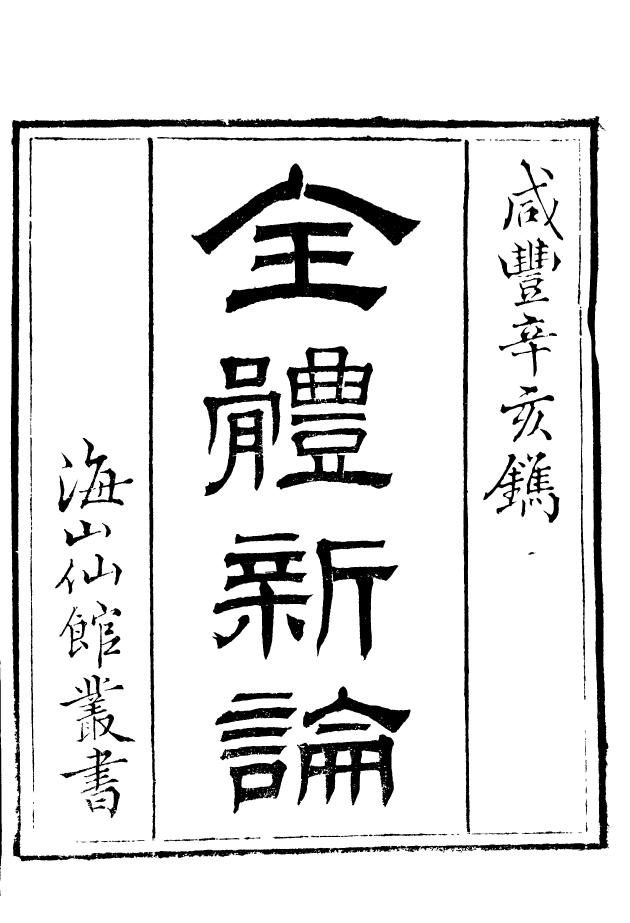 咸豐辛亥鐫
全體新論
海山仙館叢書